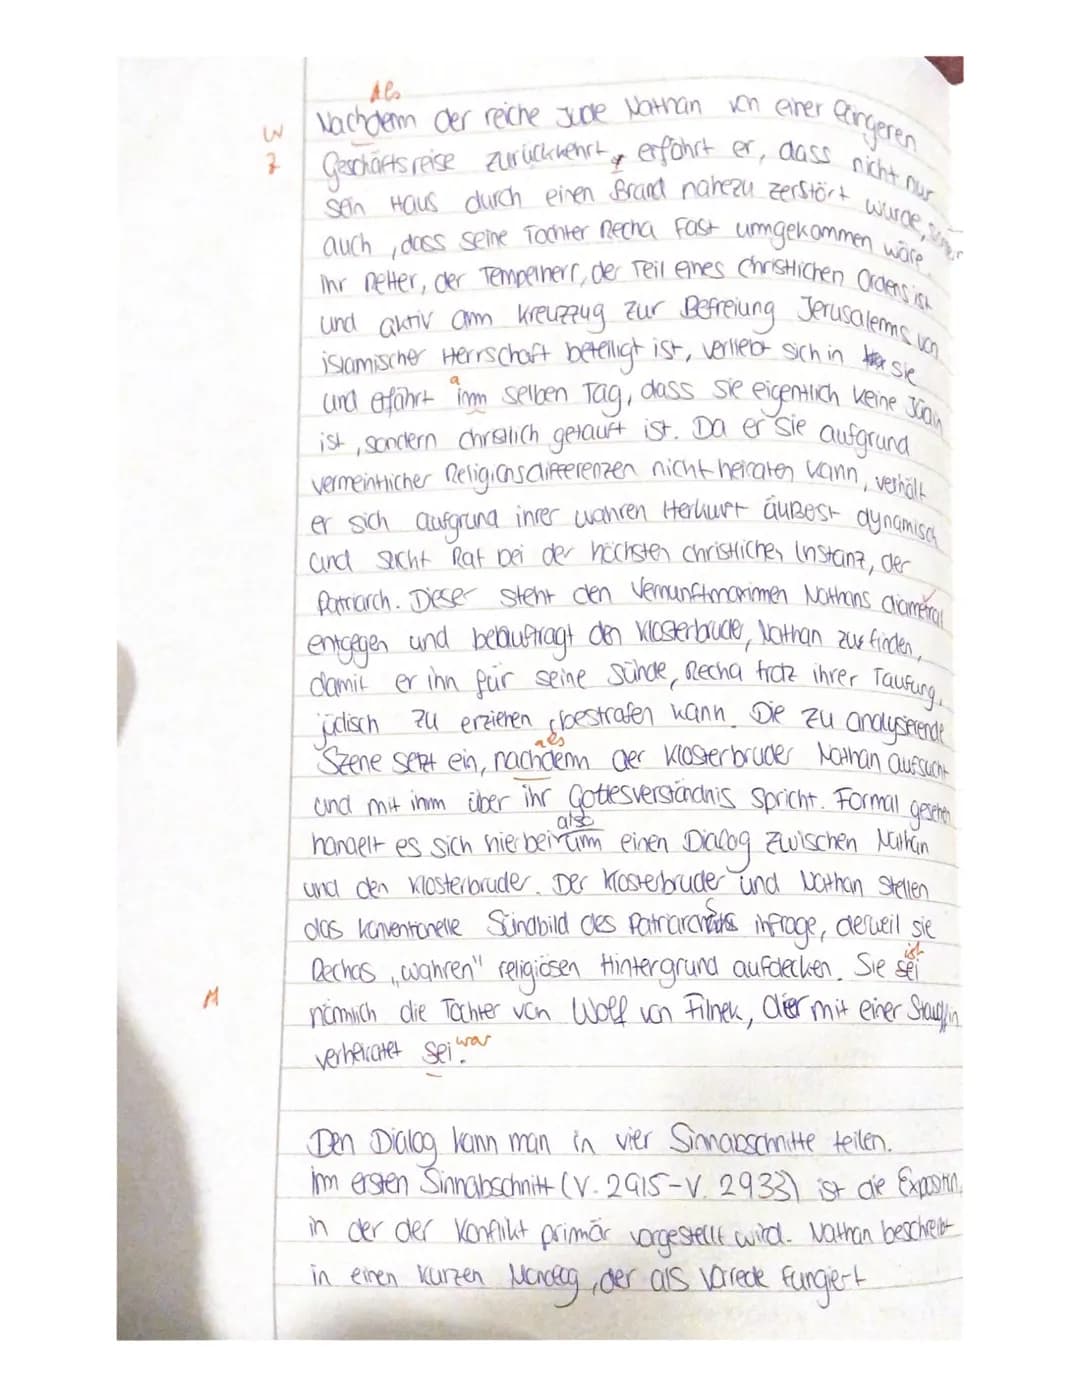 Als
Nachdem der reiche Jude Nathan von einer längeren
W
Z
Geschäftsreise zurückkehrt, erfährt er, dass nicht nur
sein Haus durch einen Brand nahezu zerstört wurde, sondern
auch, dass seine Tochter Recha fast umgekommen wäre.
Ihr Retter, der Tempelherr, der Teil eines christlichen Ordens ist
und aktiv am Kreuzzug zur Befreiung Jerusalems von
islamischer Herrschaft beteiligt ist, verliebt sich in sie
a
und erfährt im selben Tag, dass sie eigentlich keine Jüdin
ist, sondern christlich getauft ist. Da er sie aufgrund
vermeintlicher Religionsdifferenzen nicht heiraten kann, verhält
er sich aufgrund ihrer wahren Herkunft äußest dynamisch
und sucht Rat bei der höchsten christlichen Instanz, der
Patriarch. Dieser steht den Vernunftmaximen Nathans diametral
entgegen und beauftragt den Klosterbruder, Nathan zu finden,
damit er ihn für seine Sünde, Recha trotz ihrer Taufung,
jüdisch zu erziehen, bestrafen kann. Die zu analysierende
als
Szene setzt ein, nachdem der Klosterbruder Nathan aufsucht
und mit ihm über ihr Gottesverständnis spricht. Formal gesehen
also
handelt es sich hierbei um einen Dialog zwischen Nathan
und den Klosterbruder. Der Klosterbruder und Nathan stellen
das konventionelle Sündbild des Patriarchs infrage, derweil sie
ist
Rechas „wahren" religiösen Hintergrund aufdecken. Sie sei
M
nämlich die Tochter von Wolf von Filnek, der mit einer Stauffin
verheiratet sei. war
Den Dialog kann man in vier Sinnabschnitte teilen.
Im ersten Sinnabschnitt (V. 2915-V. 2933) ist die Exposition,
in der der Konflikt primär vorgestellt wird. Nathan beschreibt
in einen kurzen Monolog, der als Vorrede fungiert